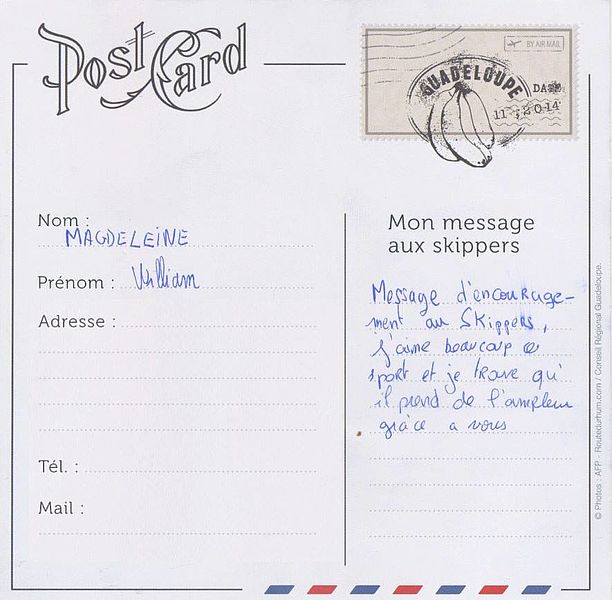 Post Card
BY AIR MAIL
GUADELOUPE
DATE
11, 2014
Nom :
MAGDELEINE
Prénom : William
Adresse :
Tél. :
Mail :
Mon message
aux skippers
Message d'encourage-
ment au Skippers,
j'aime beaucoup ce
sport et je trouve qu'
il prend de l'ampleur
grâce a vous
© Photos : AFP - Routedurhum.com / Conseil Régional Guadeloupe.